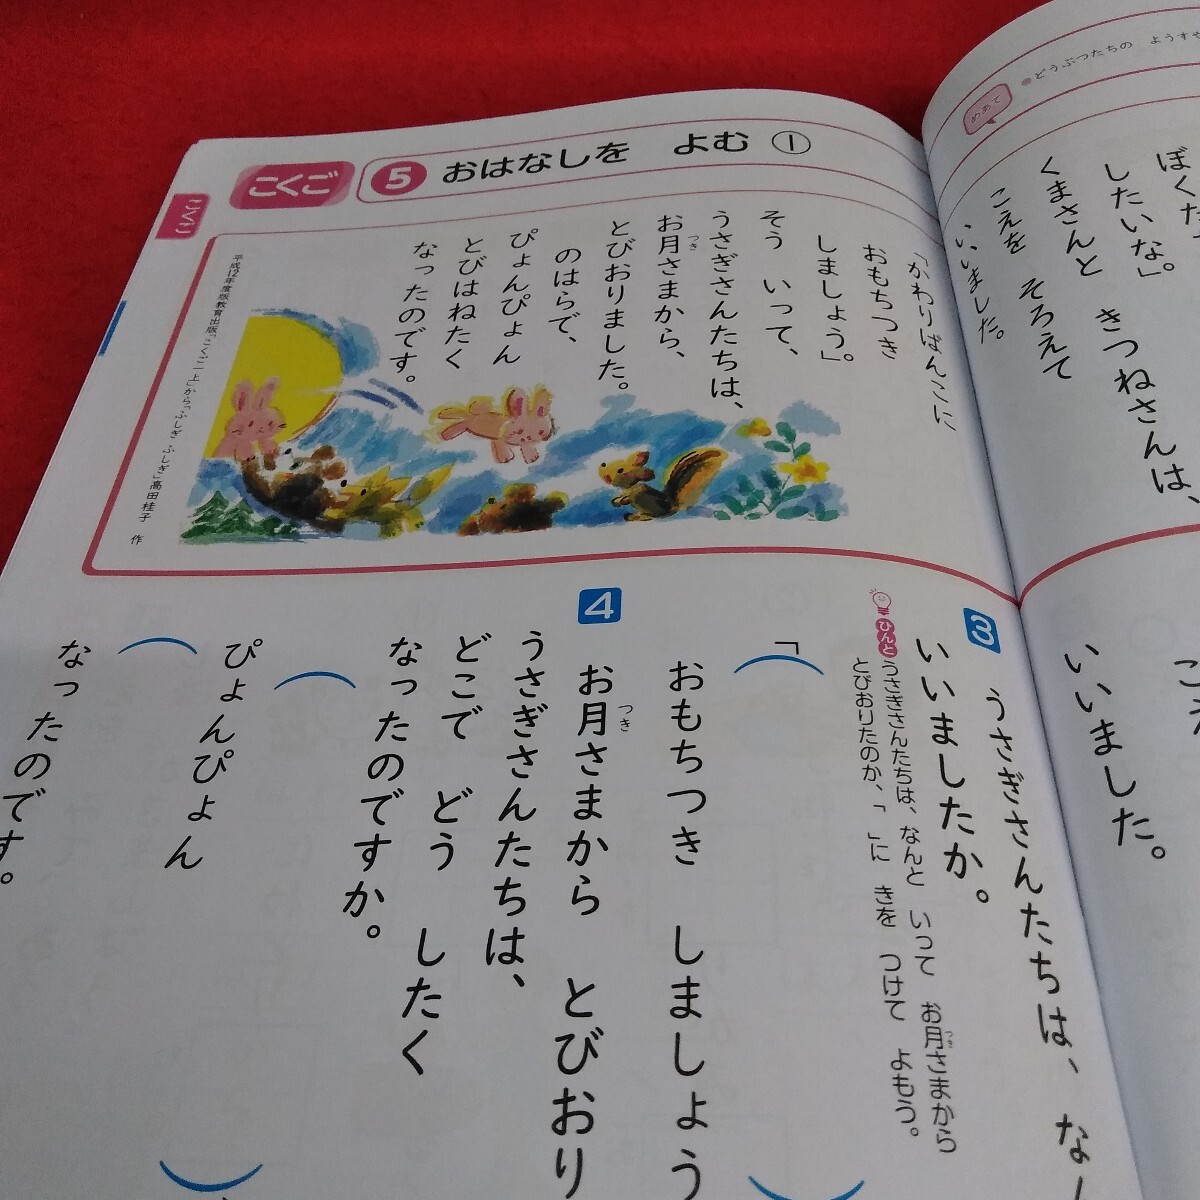 こくご
5 おはなしを よむ ①
こくご
めあて
●どうぶつたちの ようすや
ぼくた
したいな」。
くまさんと きつねさんは、
こえを そろえて
いいました。
「かわりばんこに
おもちつき
しましょう」。
そう いって、
うさぎさんたちは、
お月さまから、
つき
とびおりました。
のはらで、
ぴょんぴょん
とびはねたく
なったのです。
平成12年度版教育出版「こくご一上」から「ふしぎ ふしぎ」高田桂子 作
いいました。
3
うさぎさんたちは、な
いいましたか。
ひんと
うさぎさんたちは、なんと いって お月さまから
つき
とびおりたのか、「 」に きを つけて よもう。
「
おもちつき しましょう
4
お月さまから とびおり
つき
うさぎさんたちは、
どこで どう したく
なったのですか。
ぴょんぴょん
なったのです。